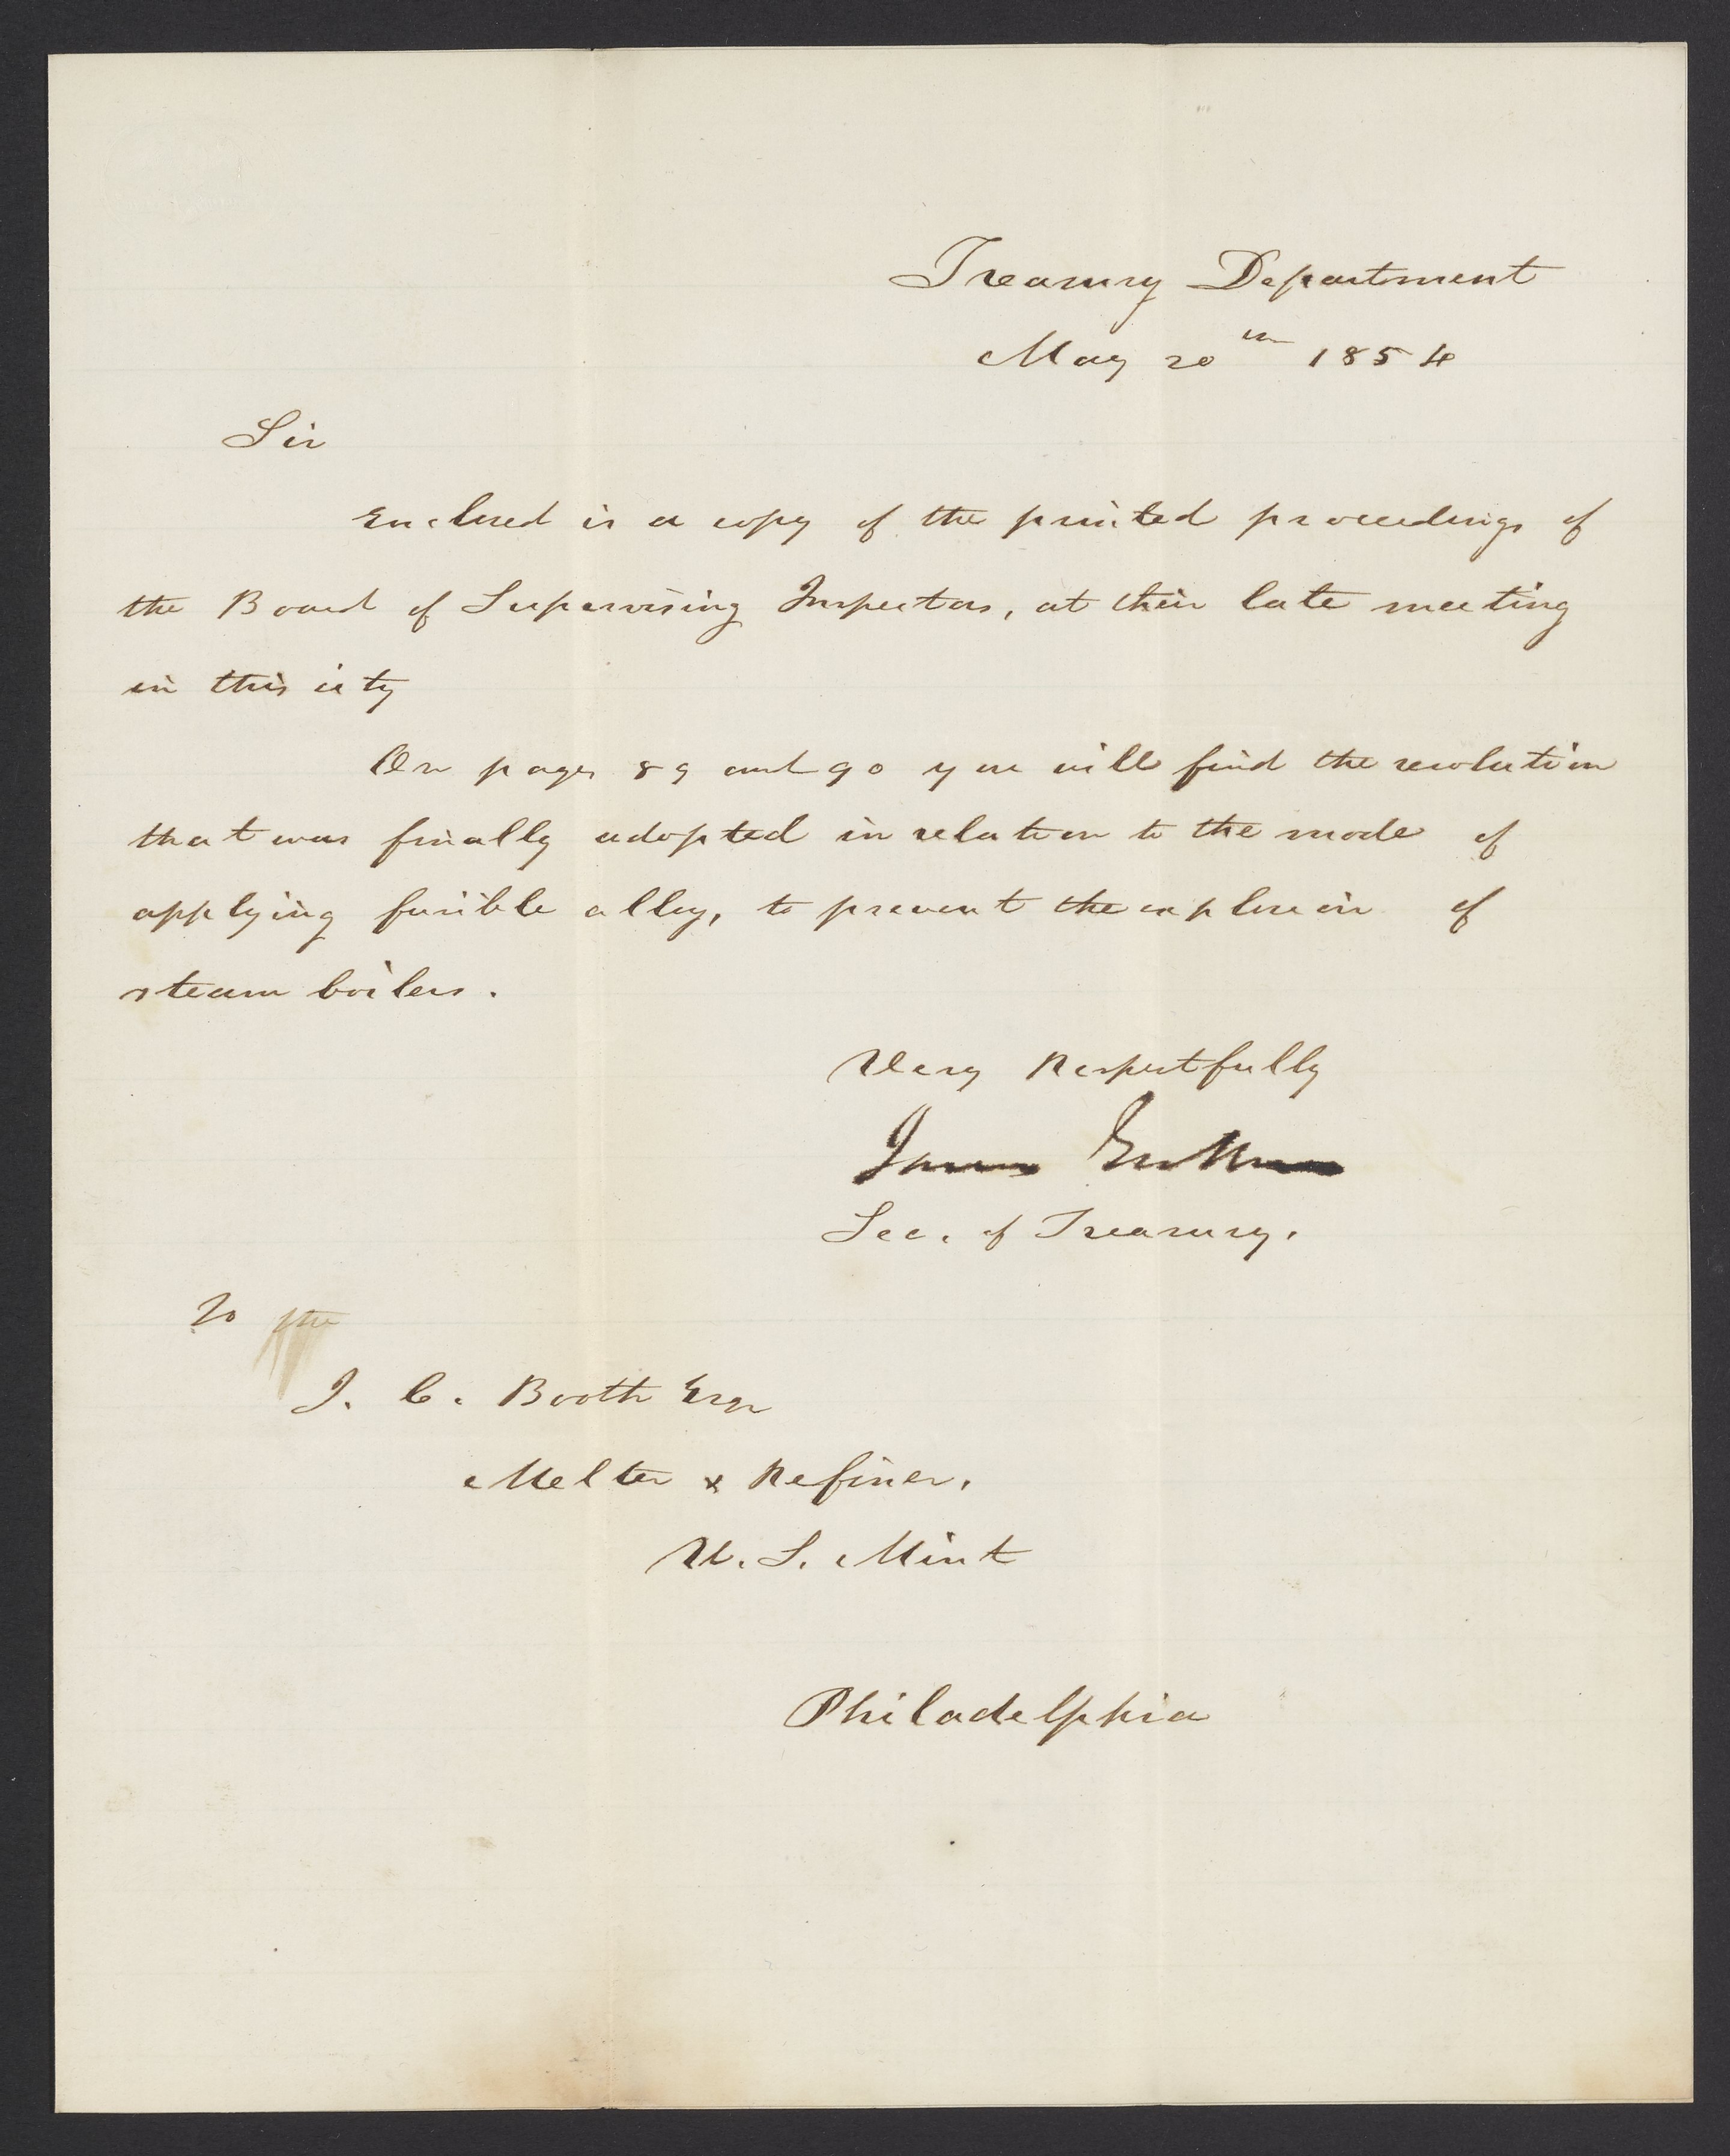 Treasury Department
May 20th 1854
Sir
Enclosed is a copy of the printed proceedings of
the Board of Supervising Inspectors, at their late meeting
in this city
On pages 89 and 90 you will find the resolution
that was finally adopted in relation to the mode of
applying fusible alloy, to prevent the explosion of
steam boilers.
Very Respectfully
James Guthrie
Sec. of Treasury.
To the
J. C. Booth Esqr
Melter & Refiner.
U. S. Mint
Philadelphia